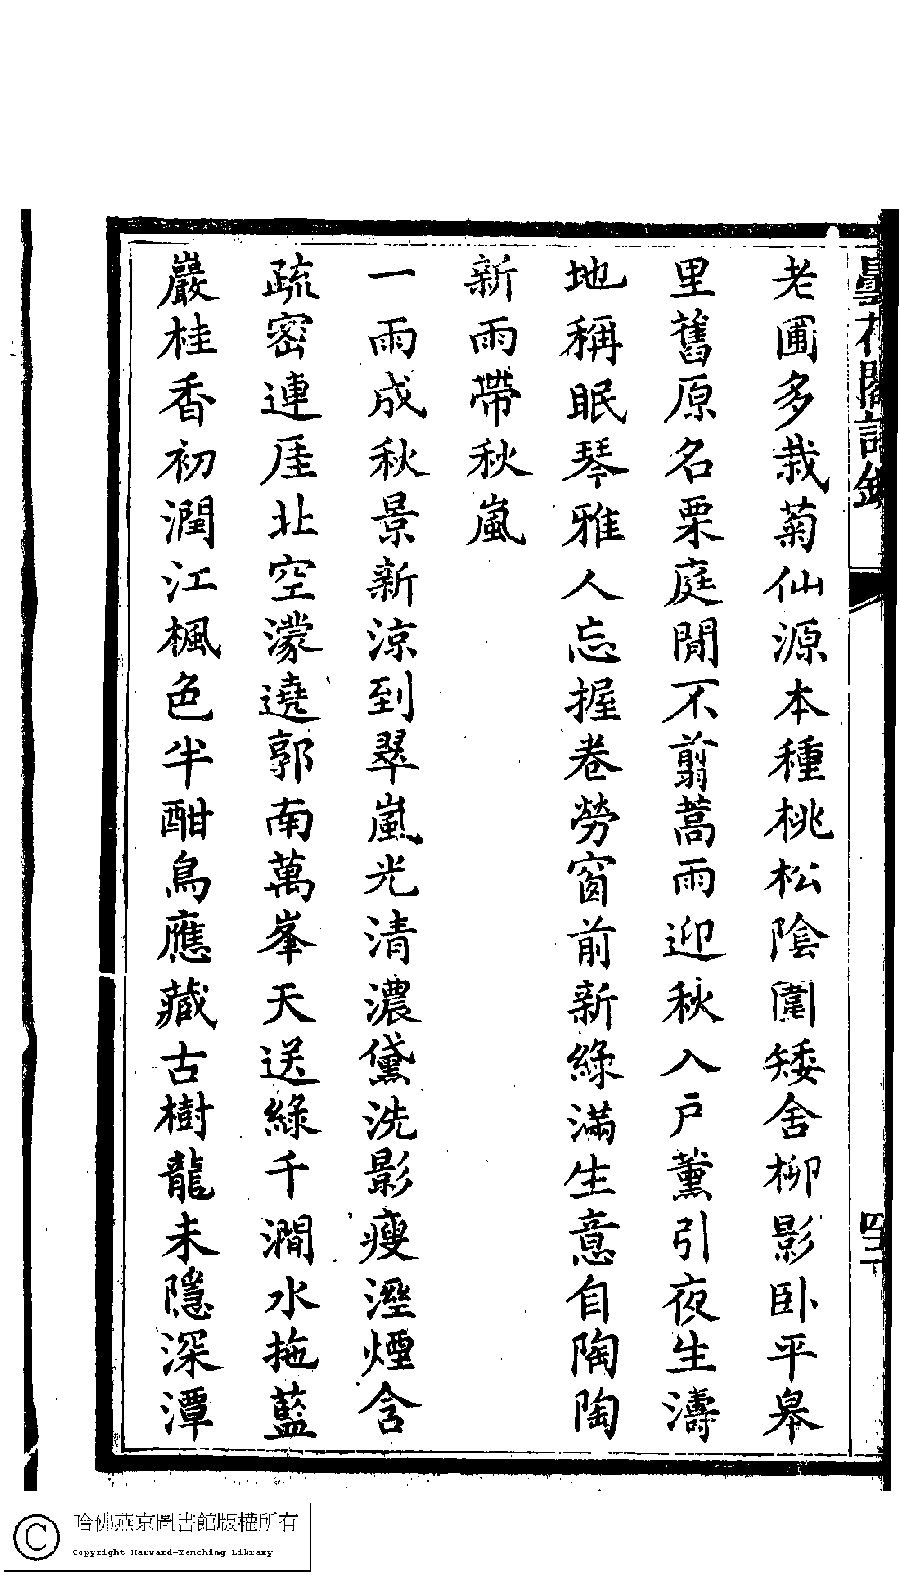 曇花閣詩鈔
老圃多栽菊仙源本種桃松陰圍矮舍柳影臥平皋
里舊原名栗庭閒不翦蒿雨迎秋入戶薰引夜生濤
地稱眠琴雅人忘握卷勞窗前新綠滿生意自陶陶
新雨帶秋嵐
一雨成秋景新涼到翠嵐光清濃黛洗影瘦溼煙含
疏密連厓北空濛遶郭南萬峯天送綠千澗水拖藍
巖桂香初潤江楓色半酣鳥應藏古樹龍未隱深潭
哈佛燕京圖書館版權所有
Copyright Harvard-Yenching Library